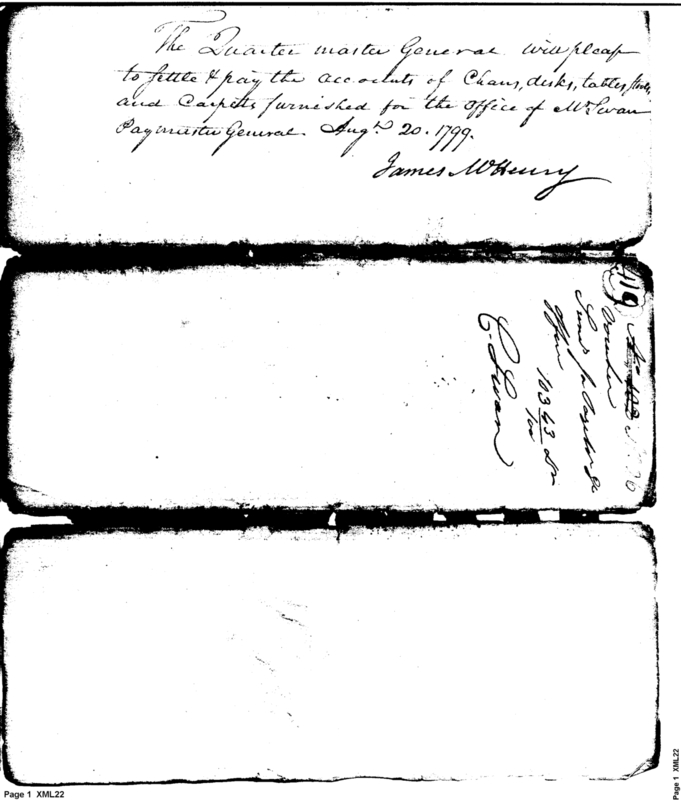 The Quarter master General will please
to settle & pay the accounts of Chairs, desks, tables, stools,
and Carpets furnished for the office of Mr Swan
Paymaster General. Augt. 20. 1799.
James McHenry
119
Voucher
Sund
office
103 43/100 Dr
C. Swan
Page 1 XML22
Page 1 XML22